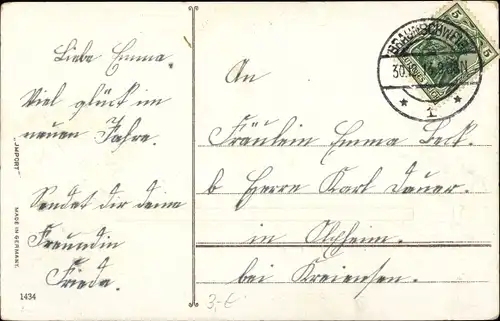 Liebe Emma.
Viel glück im
neuen Jahre.
Sendet dir deine
Freundin
Frieda.
"IMPORT"
MADE IN GERMANY.
1434
An
Fräulein Emma Beck.
b Herrn Karl Dauer.
in
bei Kreiensen.
BRAUNSCHWEIG
30.12.
1
5
5
3,-€